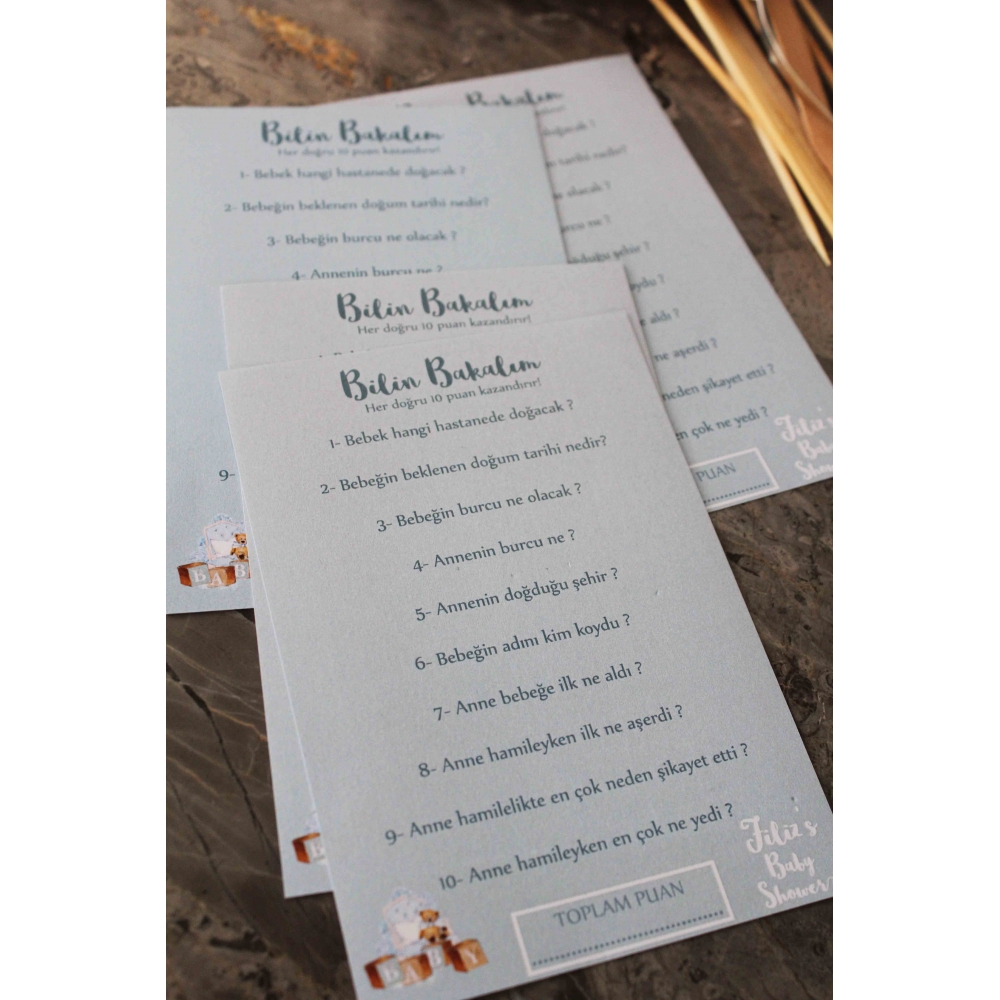 Bilin Bakalım
Bilin Bakalım
Her doğru 10 puan kazandırır!
1- Bebek hangi hastanede doğacak ?
2- Bebeğin beklenen doğum tarihi nedir?
3- Bebeğin burcu ne olacak ?
4- Annenin burcu ne ?
9-
BAB
doğacak ?
tarihi nedir?
olacak ?
burcu ne ?
doğduğu şehir ?
koydu ?
aldı ?
ne aşerdi ?
neden şikayet etti ?
en çok ne yedi ?
PUAN
Filiz's
Baby
Show
Bilin Bakalım
Her doğru 10 puan kazandırır!
B
Bilin Bakalım
Her doğru 10 puan kazandırır!
1- Bebek hangi hastanede doğacak ?
2- Bebeğin beklenen doğum tarihi nedir?
3- Bebeğin burcu ne olacak ?
4- Annenin burcu ne ?
5- Annenin doğduğu şehir ?
6- Bebeğin adını kim koydu ?
7- Anne bebeğe ilk ne aldı ?
8- Anne hamileyken ilk ne aşerdi ?
9- Anne hamilelikte en çok neden şikayet etti ?
10- Anne hamileyken en çok ne yedi ?
TOPLAM PUAN
BABY
Filiz's
Baby
Shower